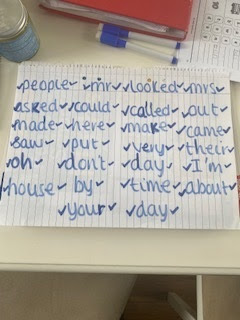 people mr looked mrs
asked could called out
made here make came
saw put very their
oh don't day I'm
house by time about
your day